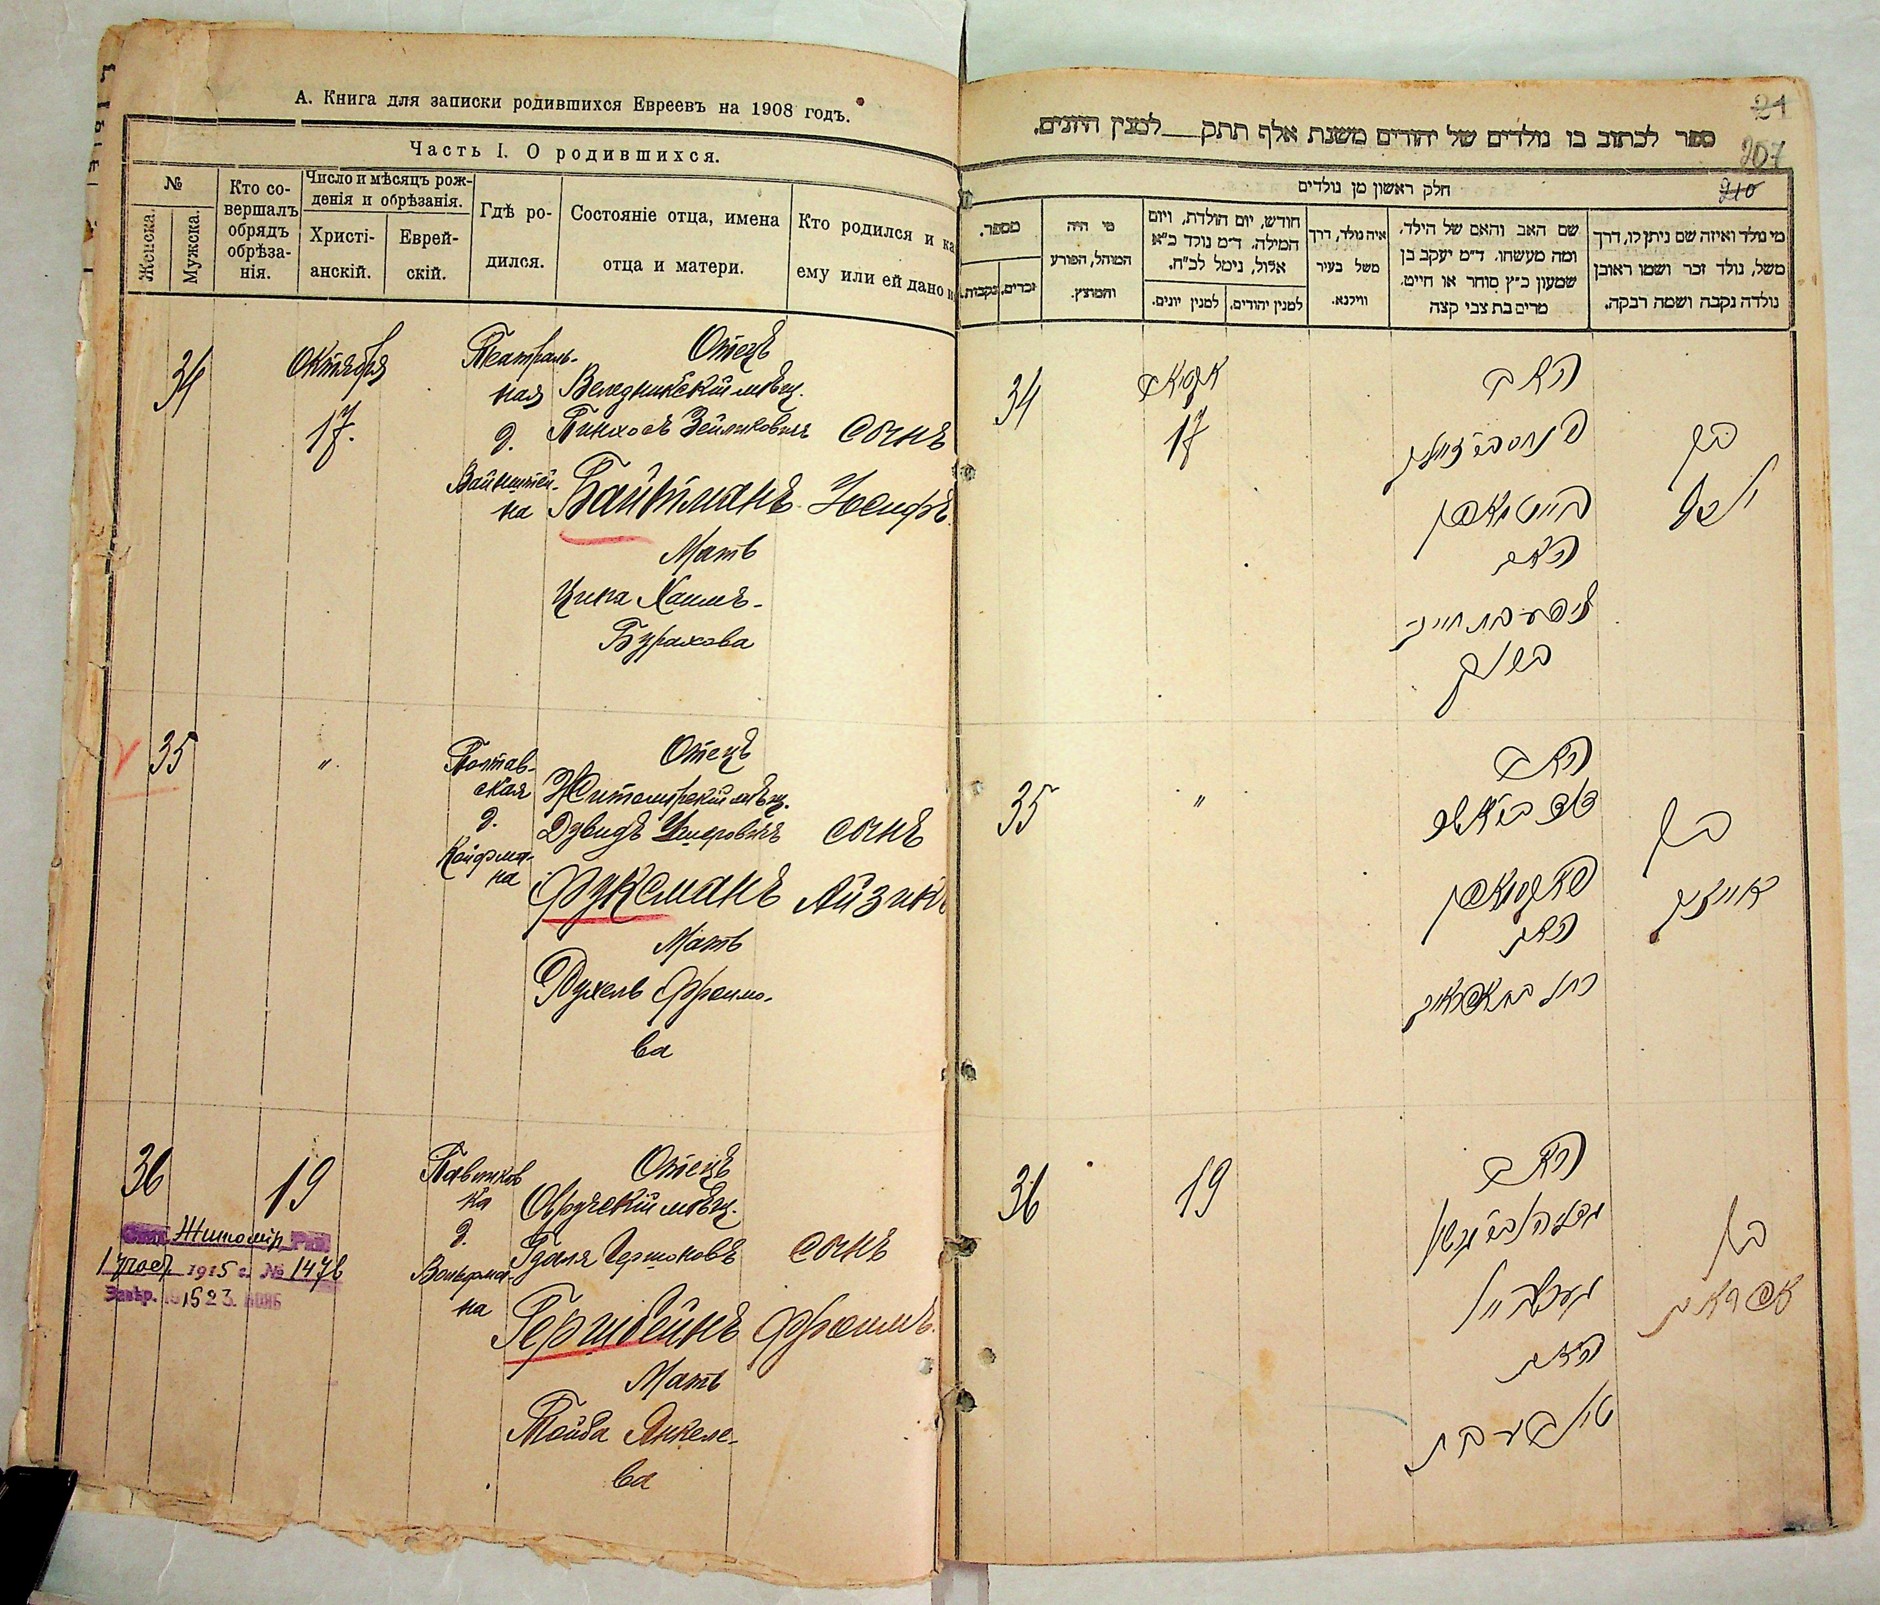 А. Книга для записки родившихся Евреевъ на 1908 годъ.
Часть I. О родившихся.
№
Женска.
Мужска.
Кто со-
вершалъ
обрядъ
обрѣза-
нія.
Число и мѣсяцъ рож-
денія и обрѣзанія.
Христі-
анскій.
Еврей-
скій.
Гдѣ ро-
дился.
Состояніе отца, имена
отца и матери.
Кто родился и ка
ему или ей дано и
34
Октября
17.
Театраль-
ная
д.
Вайнштей-
на
Отецъ
Веледникскій мѣщ.
Пинхосъ Зейликовичъ
Байтманъ
Мать
Ципа Хаимъ-
Бурахова
сынъ
Иосифъ
35
"
Полтав-
ская
д.
Койфма-
на
Отецъ
Житомирскій мѣщ.
Дувидъ
Фуксманъ
Мать
Рухель Фроимо-
ва
сынъ
Айзикъ
36
19
Павликов
ка
д.
Вольфма-
на
Отецъ
Овручскій мѣщ.
Гдаля Гершковъ
Герцвейнъ
Мать
Тойба Янкеле-
ва
сынъ
Фроимъ.
Житомір
1915 г. № 1476
ספר לכתוב בו נולדים של יהודים משנת אלף תתק למנין היונים.
21
207
210
חלק ראשון מן נולדים
מספר.
זכרים.
נקבות.
מי היה
המוהל, הפורע
והמוצץ.
חודש, יום הולדת, ויום
המילה. ד״מ נולד כ״א
אלול, נימל לכ״ח.
למנין יונים.
למנין יהודים.
איה נולד, דרך
משל בעיר
ווילנא.
שם האב והאם של הילד,
ומה מעשהו. ד״מ יעקב בן
שמעון כ״ץ סוחר או חייט,
מרים בת צבי קצה
מי נולד ואיזה שם ניתן לו, דרך
משל, נולד זכר ושמו ראובן
נולדה נקבה ושמה רבקה.
34
17
האב
פנחס ב״ר זיילק
בייטמאן
האם
ציפע בת חיים
בן
יוסף
35
"
האב
דוד
פוקסמאן
האם
רחל בת אפראים
בן
אייזיק
36
19
האב
גדליה ב״ר
האם
טויבע בת
בן
אפראים